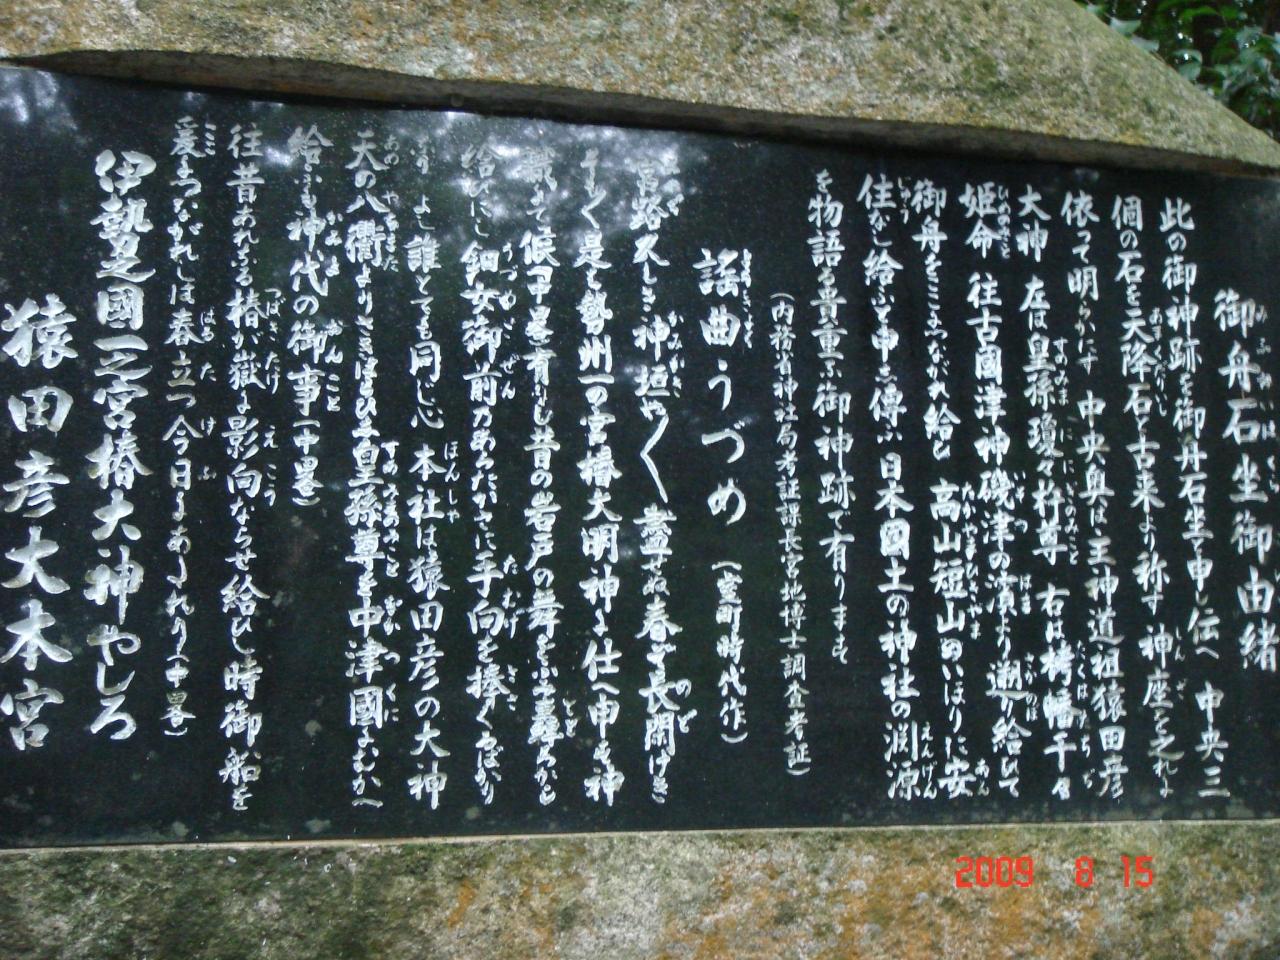 御舟石坐御由緒
此の御神跡を御舟石坐と申し伝へ 中央三
個の石を天降石と古来より称す 神座を之れに
依って明らかにす 中央奥は主神道祖猿田彦
大神 左は皇孫瓊々杵尊 右は栲幡千々
姫命 往古國津神磯津の濱より遡り給ひて
御舟をここにつながれ給ひ 高山短山のいほりに安
住なし給ふと申し傳ふ 日本國土の神社の渕源
を物語る貴重な御神跡で有ります
(内務省神社局考証課長宮地博士調査考証)
謠曲うづめ (室町時代作)
宮路久しき神垣や〱 春ぞ長閑けき
そも〱是は勢州一の宮椿大明神に仕へ申す神
職にて候 昔の岩戸の舞を
給ひにし鈿女御前 あらたかに手向を捧ぐるばかり
なり よし誰とても同じ心 本社は猿田彦の大神
天の八衢よりさきはらひ 皇孫尊を中津國によむかへ
給ふも神代の御事(中畧)
往昔 椿が嶽に影向ならせ給ひし時御船を
爰につながれしは春立つ今日 (中畧)
伊勢之國一之宮椿大神やしろ
猿田彦大本宮
2009 8 15